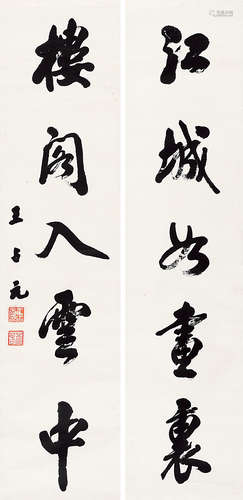 江城如畫裏
樓閣入雲中
王占元